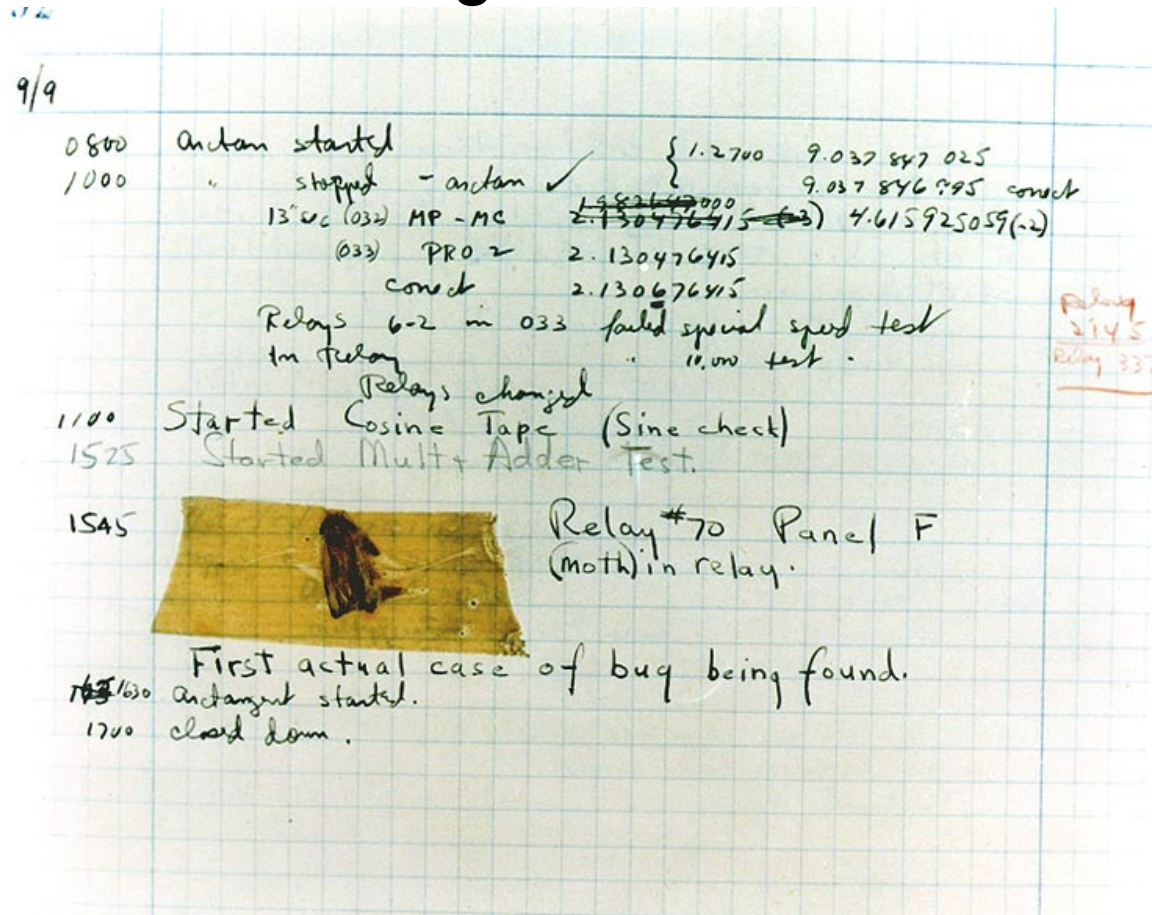 9/9
0800 arctan started { 1.2700 9.037 847 025
1000 " stopped - arctan ✓ 9.037 846 795 correct
13" sec (032) MP - MC 1.982647000 2.130476415 (-3) 4.615925059(-2)
(033) PRO 2 2.130476415
correct 2.130676415
Relays 6-2 in 033 failed special speed test
In Relay " 10,000 test .
Relays changed
1100 Started Cosine Tape (Sine check)
1525 Started Mult + Adder Test.
1545 Relay #70 Panel F
(moth) in relay.
First actual case of bug being found.
1630 arctangent started.
1700 closed down .
Relay
2145
Relay 337